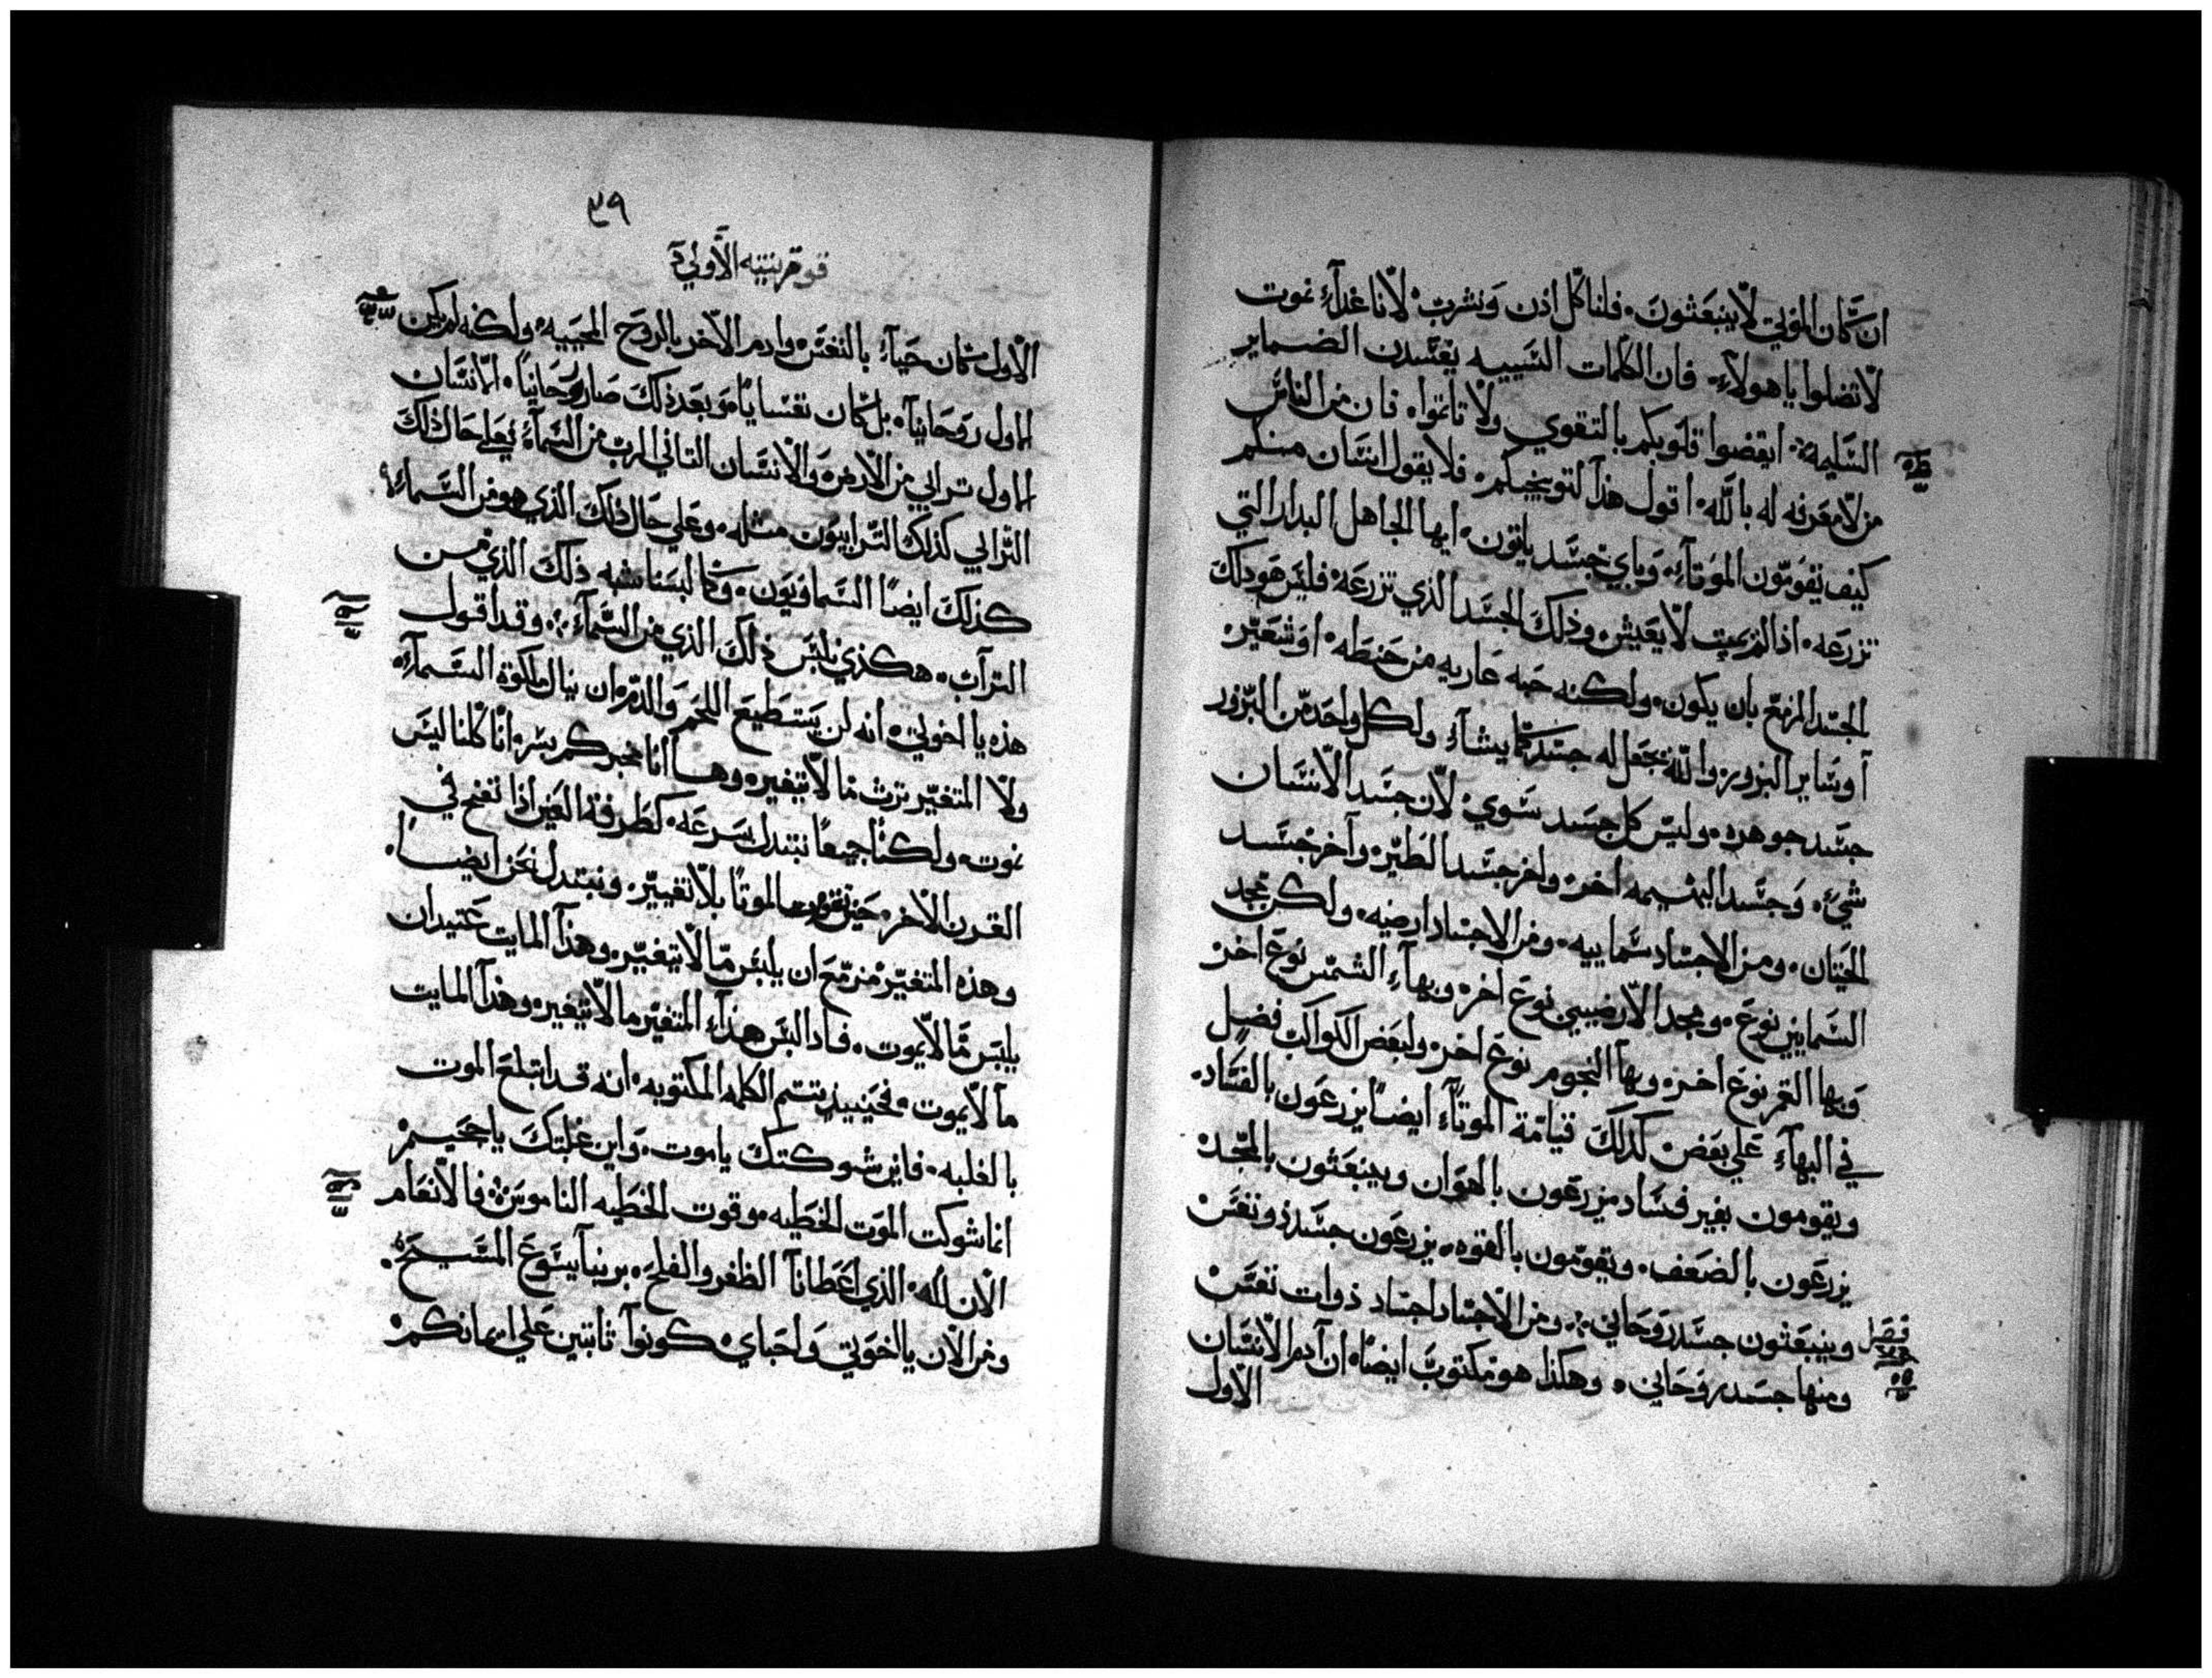 ان كان الموتي لا ينبعثون. فلناكل اذن ونشرب لاننا غداً نموت
لا تضلوا يا هولاء. فان الكلمات السييه يفسدن الضماير
السليمة. ايقضوا قلوبكم بالتقوي ولا تاثموا. فان من الناس
من لا معرفه له بالله. اقول هذا لتوبيخكم. فلا يقول انسان منكم
كيف يقومون الموتاء. وباي جسد ياتون. ايها الجاهل البدار التي
تزرعه. اذا لم يميت لا يعيش. وذلك الجسد الذي تزرعه فليس هو ذلك
الجسد المزمع بان يكون. ولكنه حبه عاريه من حنطه. او شعير.
أو ساير البزور. والله يجعل له جسد كما يشاء ولكل واحد من البزور
جسد جوهره. وليس كل جسد سوي. لان جسد الانسان
شي. وجسد البهيمه اخر. واخر جسد الطير. وآخر جسد
الحيتان. ومن الاجساد سماييه. ومن الاجساد ارضيه. ولكن مجد
السمايين نوع. ومجد الارضيين نوع اخر. وبهاء الشمس نوع اخر
وبها القمر نوع اخر. وبهاء النجوم نوع اخر. ولبعض الكواكب فضل
في البهاء علي بعض. كذلك قيامة الموتاء ايضاً يزرعون بالفساد.
ويقومون بغير فساد يزرعون بالهوان وينبعثون بالمجد
يزرعون بالضعف. ويقومون بالقوه. يزرعون جسد ذو نفس
وينبعثون جسد روحاني. ومن الاجساد اجساد ذوات نفس
فصل
ومنها جسد روحاني. وهكذا هو مكتوب ايضاً. ان آدم الانسان
الاول
٣٩
قورنتيه الاولي
الاول كان حياً بالنفس وادم الاخر بالروح المحييه. ولكنه لم يكن
الاول روحانياً. بل كان نفسانياً. وبعد ذلك صار روحانياً. الانسان
الاول ترابي من الارض والانسان التاني الرب من السماء فعلي حال ذلك
الترابي كذلك الترابيون مثله. وعلي حال ذلك الذي هو من السماء
كذلك ايضاً السماويون. وكما لبسنا شبه ذلك الذي من
التراب. هكذي نلبس ذلك الذي من السماء. وقد اقول
هذه يا اخوتي. انه لن يستطيع اللحم والدم ان ينال ملكوة السماء.
ولا المتغير يرث ما لا يتغير. وها انا مخبركم بسر. انا كلنا ليس
نموت. ولكنا جميعاً نبتدل بسرعه. كطرفة العين اذا نفخ في
القرن الاخر. حين تقوم الموتا بلا تغيير. ونبتدل نحن ايضا.
وهذه المتغير مزمع ان يلبس ما لا يتغير. وهذا المايت عتيد ان
يلبس ما لا يموت. فاذا لبس هذاء المتغير ما لا يتغير. وهذا المايت
ما لا يموت. فحينيذ تتم الكلمه المكتوبه. انه قد ابتلع الموت
بالغلبه. فاين شوكتك يا موت. واين غلبتك يا جحيم
انما شوكت الموت الخطيه. وقوت الخطيه الناموس. فالانعام
الان لله. الذي اعطانا الظفر والفلح. بربنا يسوع المسيح.
ومن الان يا اخوتي واحباي. كونوا ثابتين علي ايمانكم